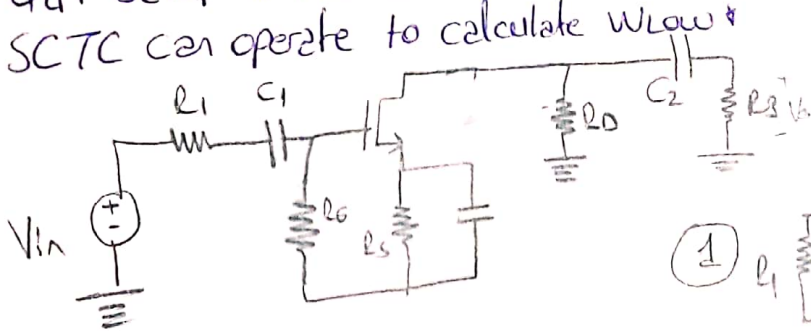 SCTC can operate to calculate WLOW
R1
C1
C2
RD
R3
RG
RS
Vin
+
-
1
R1